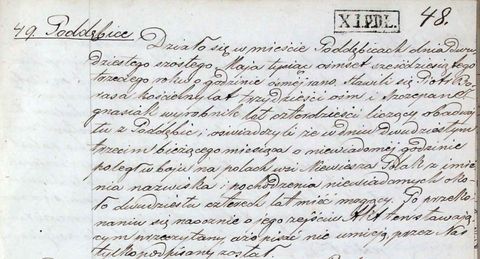 XIPDL.
48.
49. Poddębice
Działo się w mieście Poddębicach dnia dwu-
dziestego szóstego Maja tysiąc ośmset sześćdziesiątego
trzeciego roku o godzinie ósmej rano, stawili się Piotr
kościelny lat trzydzieści ośm i Szczepan
Ignasiak wyrobnik lat czterdzieści liczący obadwaj
tu z Poddębic i oświadczyli że w dniu dwudziestym
trzecim bieżącego miesiąca o niewiadomej godzinie
poległ w boju na polach wsi Niewiesza Polak z imie-
nia nazwiska i pochodzenia niewiadomych oko-
ło dwudziestu czterech lat mieć mogący. Po przeko-
naniu się naocznie o jego zejściu Akt ten stawają-
cym przeczytany a że pisać nie umieją, przez Nas
tylko podpisany został.